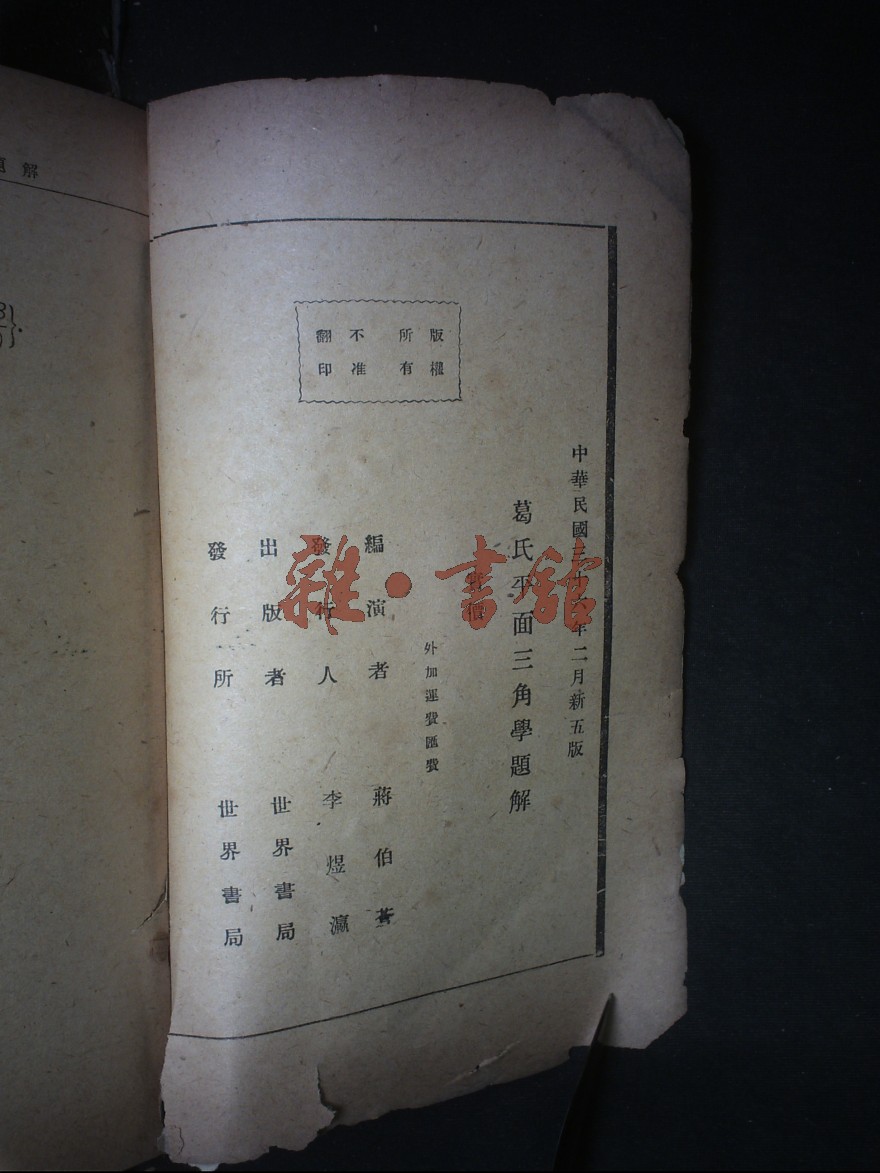 題解
版權
所有
不准
翻印
中華民國三十六年二月新五版
葛氏平面三角學題解
實價
外加運費匯費
編演者 蔣伯蒼
發行人 李煜瀛
出版者 世界書局
發行所 世界書局
雜·書館